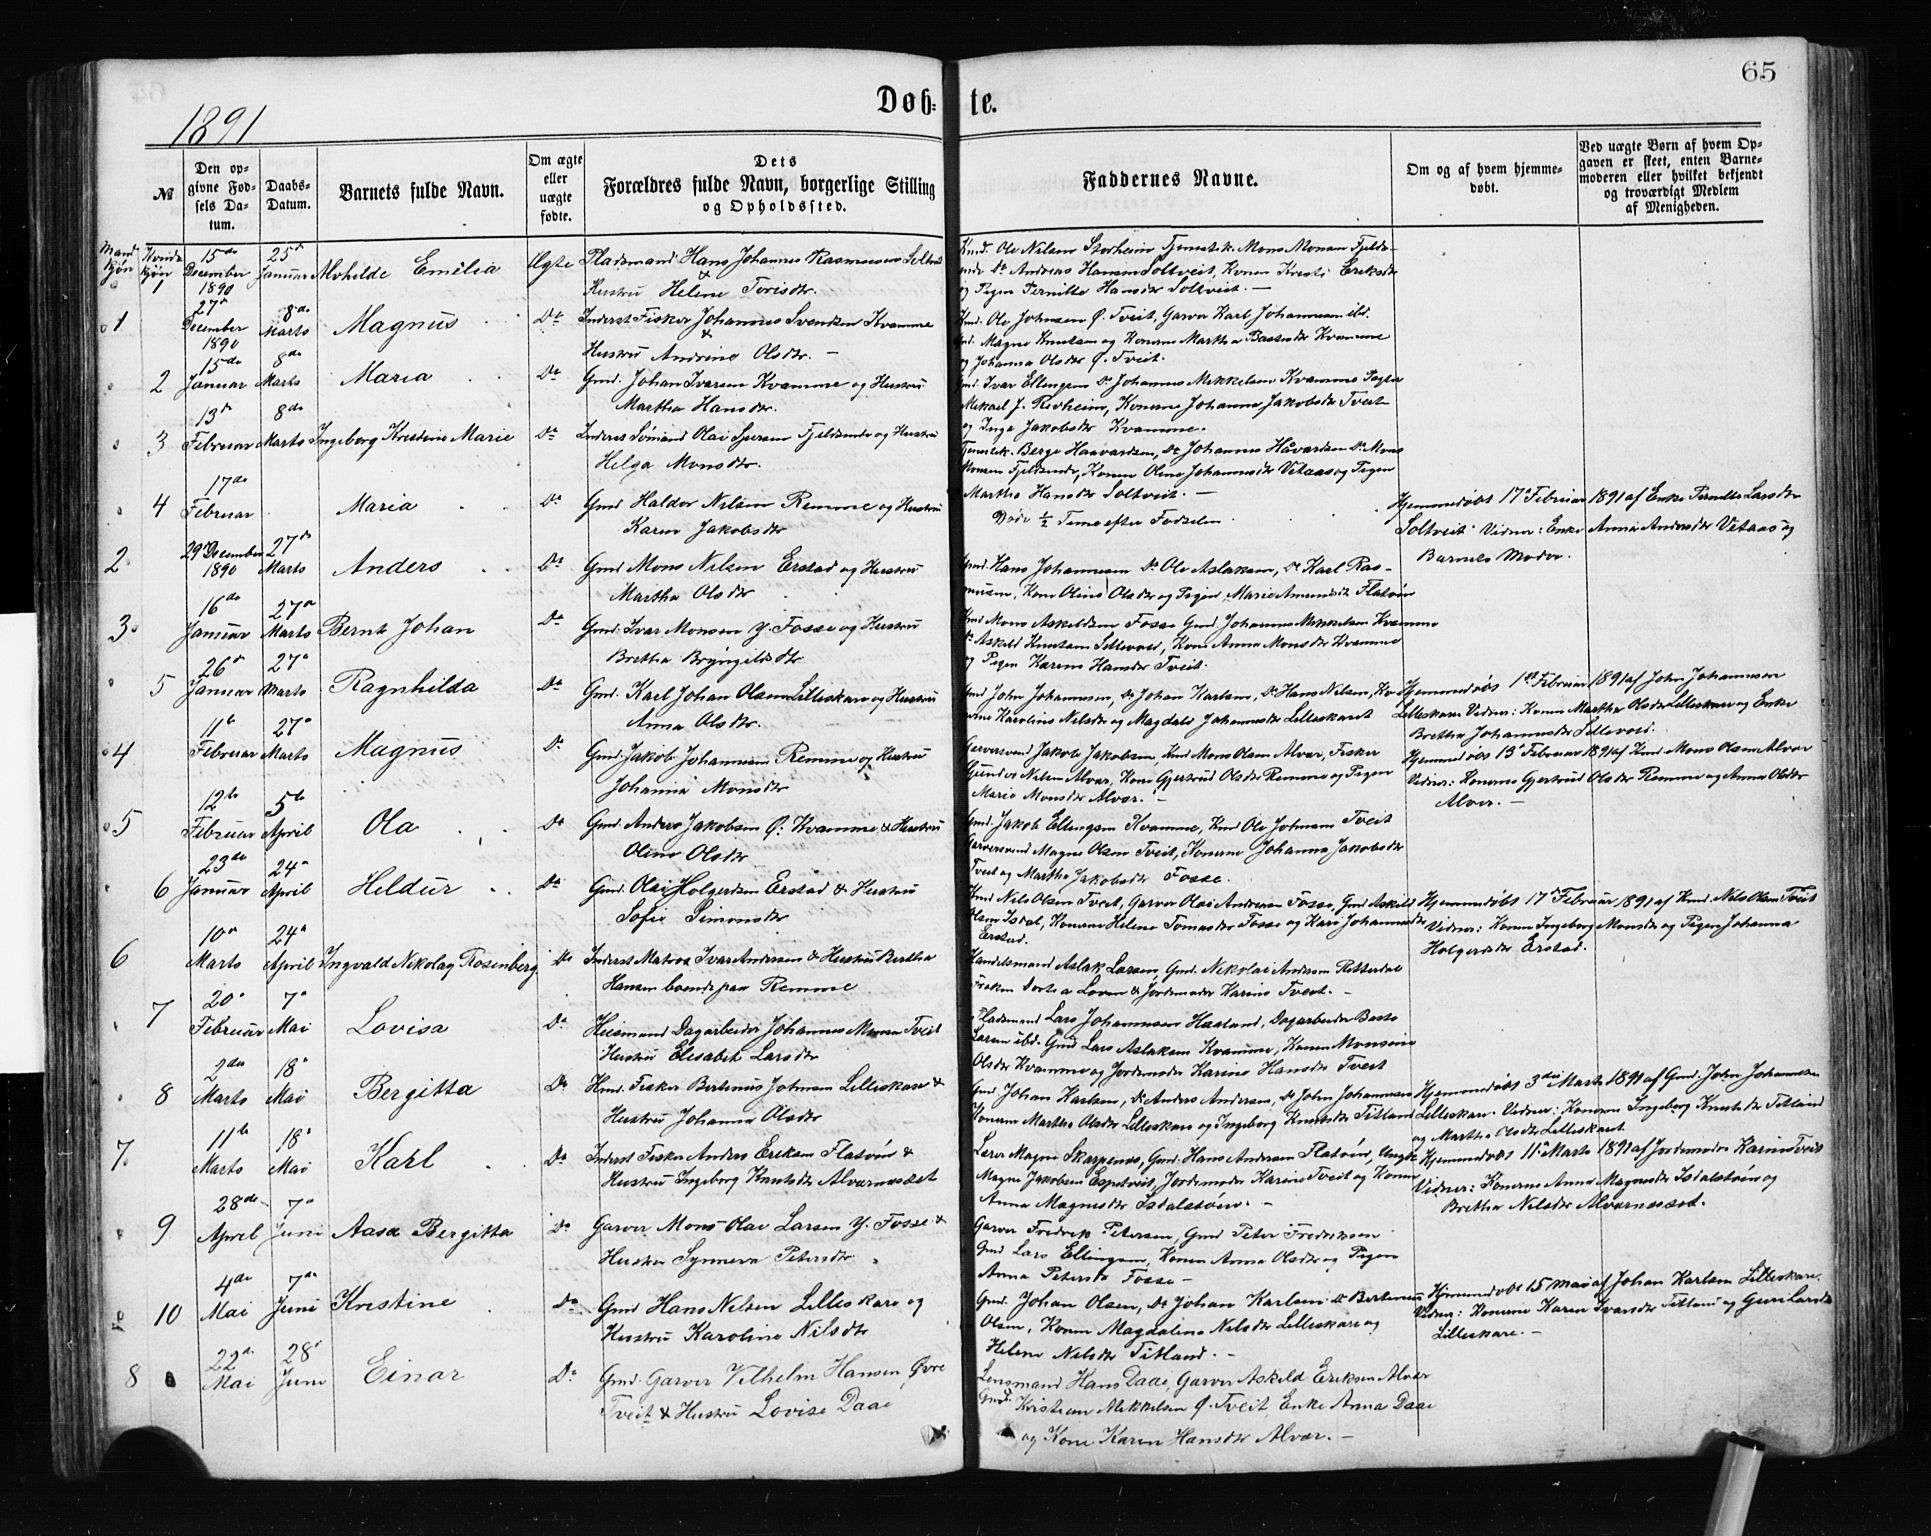 65
Døb- te.
1891
№
Den opgivne Fødsels Datum.
Daabs-Datum.
Barnets fulde Navn.
Om ægte eller uægte fødte.
Dets Forældres fulde Navn, borgerlige Stilling og Opholdssted.
Faddernes Navne.
Om og af hvem hjemmedøbt.
Ved uægte Børn af hvem Opgaven er skeet, enten Barnemoderen eller hvilket bekjendt og troværdigt Medlem af Menigheden.
Mandkjøn Kvindekjøn
1 15de December 1890 25d Januar Alvhilde Emilia Ægte Pladsmand Hans Johannes Rasmussen &
Hustru Helene Torisdtr.
Gmd. Ole Nilsen Storheim Tjenestek. Mons Monsen
Do Andreas Hansen Soltveit, Konen Kristi Eriksdtr
og Pigen Pernille Hansdtr Soltveit. —
1 27d December 1890 8de Marts Magnus Do Inderst Fisker Johannes Svendsen Kvamme &
Hustru Andrine Olsdtr. —
Gmd. Ole Johnsen Ø. Tveit, Garver Karl Johannesen ibd.
Gmd. Magne Knutsen og Konerne Martha Bastesdtr Kvamme
og Johanna Olsdtr Ø. Tveit.
2 15de Januar 8de Marts Maria Do Gmd. Johan Ivarsen Kvamme og Hustru
Martha Hansdtr.
Gmd Ivar Ellingsen Do Johannes Mikkelsen Kvamme
Mikael J. Revheim, Konerne Johanna Jakobsdtr Tveit
og Inga Jakobsdtr Kvamme.
3 13d Februar 8de Marts Ingeborg Kristine Marie Do Inderst Sømand Olai Fjeldsende og Hustru
Helga Monsdtr.
Tjenestek. Berge Haavardsen, Do Johannes Håvardsen Do Mons
Monsen Fjeldsende, Konen Oline Johannesdtr Vetaas og Pigen
Martha Hansdtr Soltveit. —
4 17de Februar Maria Do Gmd Haldor Nilsen Remme og Hustru
Karen Jakobsdtr
Døde ½ Time efter Fødselen
Hjemmedøbt 17d Februar 1891 af Enke Pernille Larsdtr
Soltveit Vidner: Enke Anna Andersdtr Vetaas og
Barnets Moder.
2 29d December 1890 27d Marts Anders Do Gmd Mons Nilsen Erstad og Hustru
Martha Olsdtr
Gmd. Hans Johannesen Do Ole Aslaksen, Do Karl Rasmussen,
Kone Oline Olsdtr og Pigen Marie Amundsdtr Flatøen
3 16de Januar 27d Marts Bernt Johan Do Gmd. Ivar Monsen y. Fosse og Hustru
Bretha Bryngelsdtr
Gmd Mons Askildsen Fosse Gmd. Johannes Mikkelsen Kvamme
Do Askild Knutsen Sellevold, Kone Anna Monsdtr Kvamme
og Pigen Karen Hansdtr Tveit.
5 26d Januar 27d Marts Ragnhilda Do Gmd. Karl Johan Olsen Lilleskare og Hustru
Anna Olsdtr.
Gmd John Johannesen, Do Johan Karlsen, Do Hans Nilsen, Konerne
Karoline Nilsdtr og Magdale Johannesdtr Lilleskaret
Hjemmedøbt 1ste Februar 1891 af John Johannesen
Lilleskare Vidner: Konen Martha Olsdtr Lilleskare og Enke
Bretha Johannesdtr Sellevold.
4 11te Februar 27d Marts Magnus Do Gmd. Jakob Johannesen Remme og Hustru
Johanna Monsdtr
Garversvend Jakob Jakobsen, Gmd Mons Olsen Alver, Fisker
Gunder Nilsen Alver, Kone Gjertrud Olsdtr Remme og Pigen
Marie Monsdtr Alver. —
Hjemmedøbt 13d Februar 1891 af Gmd Mons Olsen Alver
Vidner: Konerne Gjertrud Olsdtr Remme og Anna Olsdtr
Alver. —
5 12te Februar 5te April Ola Do Gmd. Anders Jakobsen Ø. Kvamme & Hustru
Oline Olsdtr
Gmd. Jakob Ellingsen Kvamme, Gmd Ole Johnsen Tveit
Garversvend Magne Olsen Tveit, Konerne Johanna Jakobsdtr
Tveit og Martha Jakobsdtr Fosse.
6 23de Januar 24d April Heldur Do Gmd. Olai Holgersen Erstad & Hustru
Sofie Simonsdtr
Gmd Nils Olsen Tveit, Garver Olai Andersen Fosse, Gmd Askild
Olsen Isdal, Konerne Helene Tomasdtr Fosse og Kari Johannesdtr
Erstad.
Hjemmedøbt 17d Februar 1891 af Gmd. Nils Olsen Tveit
Vidner: Konen Ingeborg Monsdtr og Pigen Johanna
Holgersdtr Erstad.
6 10d Marts 24d April Ingvald Nikolay Rosenberg Do Inderst Matros Ivar Andersen & Hustru Bertha
Hansen boende paa Remme
Handelsmand Aslak Larsen, Gmd. Nikolai Andersen
Frøken Dortea Loven & Jordemoder Karine Tveit. —
7 20d Februar 7d Mai Lovisa Do Husmand Dagarbeider Johannes Monsen Tveit
Hustru Elisabet Larsdtr
Pladsmand Lars Johannesen Haaland, Dagarbeider Baste
Larsen ibd. Gmd Lars Aslaksen Kvamme, Konen Monsine
Olsdtr Kvamme og Jordemoder Karine Hansdtr Tveit
8 2den Marts 18d Mai Bergitta Do Gmd. Fisker Bertinus Johnsen Lilleskare &
Hustru Johanna Olsdtr
Gmd Johan Karlsen, Do Anders Andersen, Do John Johannesen
Konerne Martha Olsdtr Lilleskare og Ingeborg Knutsdtr Titland
Hjemmedøbt 3die Marts 1891 af Gmd. John Johannesen
Lilleskare. Vidner: Konerne Ingeborg Knutsdtr Titland
og Martha Olsdtr Lilleskaret
7 11te Marts 18d Mai Karl Do Inderst Fisker Anders Eriksen Flatøen &
Hustru Ingeborg Knutsdtr Alvernæset
Lærer Magne Skarpenes, Gmd. Hans Andersen Flatøen, Ungk.
Magne Jakobsen Espetveit, Jordemoder Karine Tveit og Konen
Anna Magnesdtr Isdalstøen. —
Hjemmedøbt 11te Marts 1891 af Jordemoder Karine Tveit
Vidner: Konerne Anna Magnesdtr Isdalstøen og
Bretha Nilsdtr Alvernæset.
9 28de April 7d Juni Aasa Bergitta Do Garver Mons Olai Larsen y. Fosse &
Hustru Synneva Petersdtr
Garver Fredrik Petersen, Gmd Peter Fredriksen
Gmd Lars Ellingsen, Konen Anna Olsdtr og Pigen
Anna Petersdtr Fosse —
10 4de Mai 7de Juni Kristine Do Gmd Hans Nilsen Lilleskare og
Hustru Karoline Nilsdtr
Gmd. Johan Olsen, Do Johan Karlsen Do Bertinus
Olsen, Konen Magdalena Nilsdtr Lilleskare og
Helene Nilsdtr Titland. —
Hjemmedøbt 15 mai af Johan Karlsen Lilleskare.
Vidner: Konerne Karen Ivarsdtr Titland og Guri Larsdtr
Lilleskare. —
8 22d Mai 28d Juni Einar Do Gmd. Garver Vilhelm Hansen Øvre
Tveit & Hustru Lovise Daae
Lensmand Hans Daae, Garver Askild Eriksen Alver
Gmd. Kristian Mikkelsen Ø. Tveit, Enke Anna Daae
og Kone Karen Hansdtr Alver. —